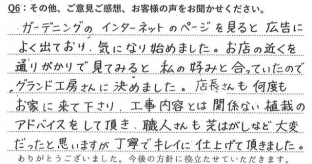 Q6：その他、ご意見ご感想、お客様の声をお聞かせください。
ガーデニングの インターネットのページを見ると 広告に
よく出ており、気になり始めました。お店の近くを
通りがかりで見てみると 私の好みと合っていたので
グランド工房さんに決めました。店長さんも 何度も
お家に来て下さり、工事内容とは 関係ない植栽の
アドバイスをして頂き、職人さんも 芝はがしなど大変
だったと思いますが丁寧でキレイに仕上げて頂きました。
ありがとうございました。今後の方針に役立たせていただきます。